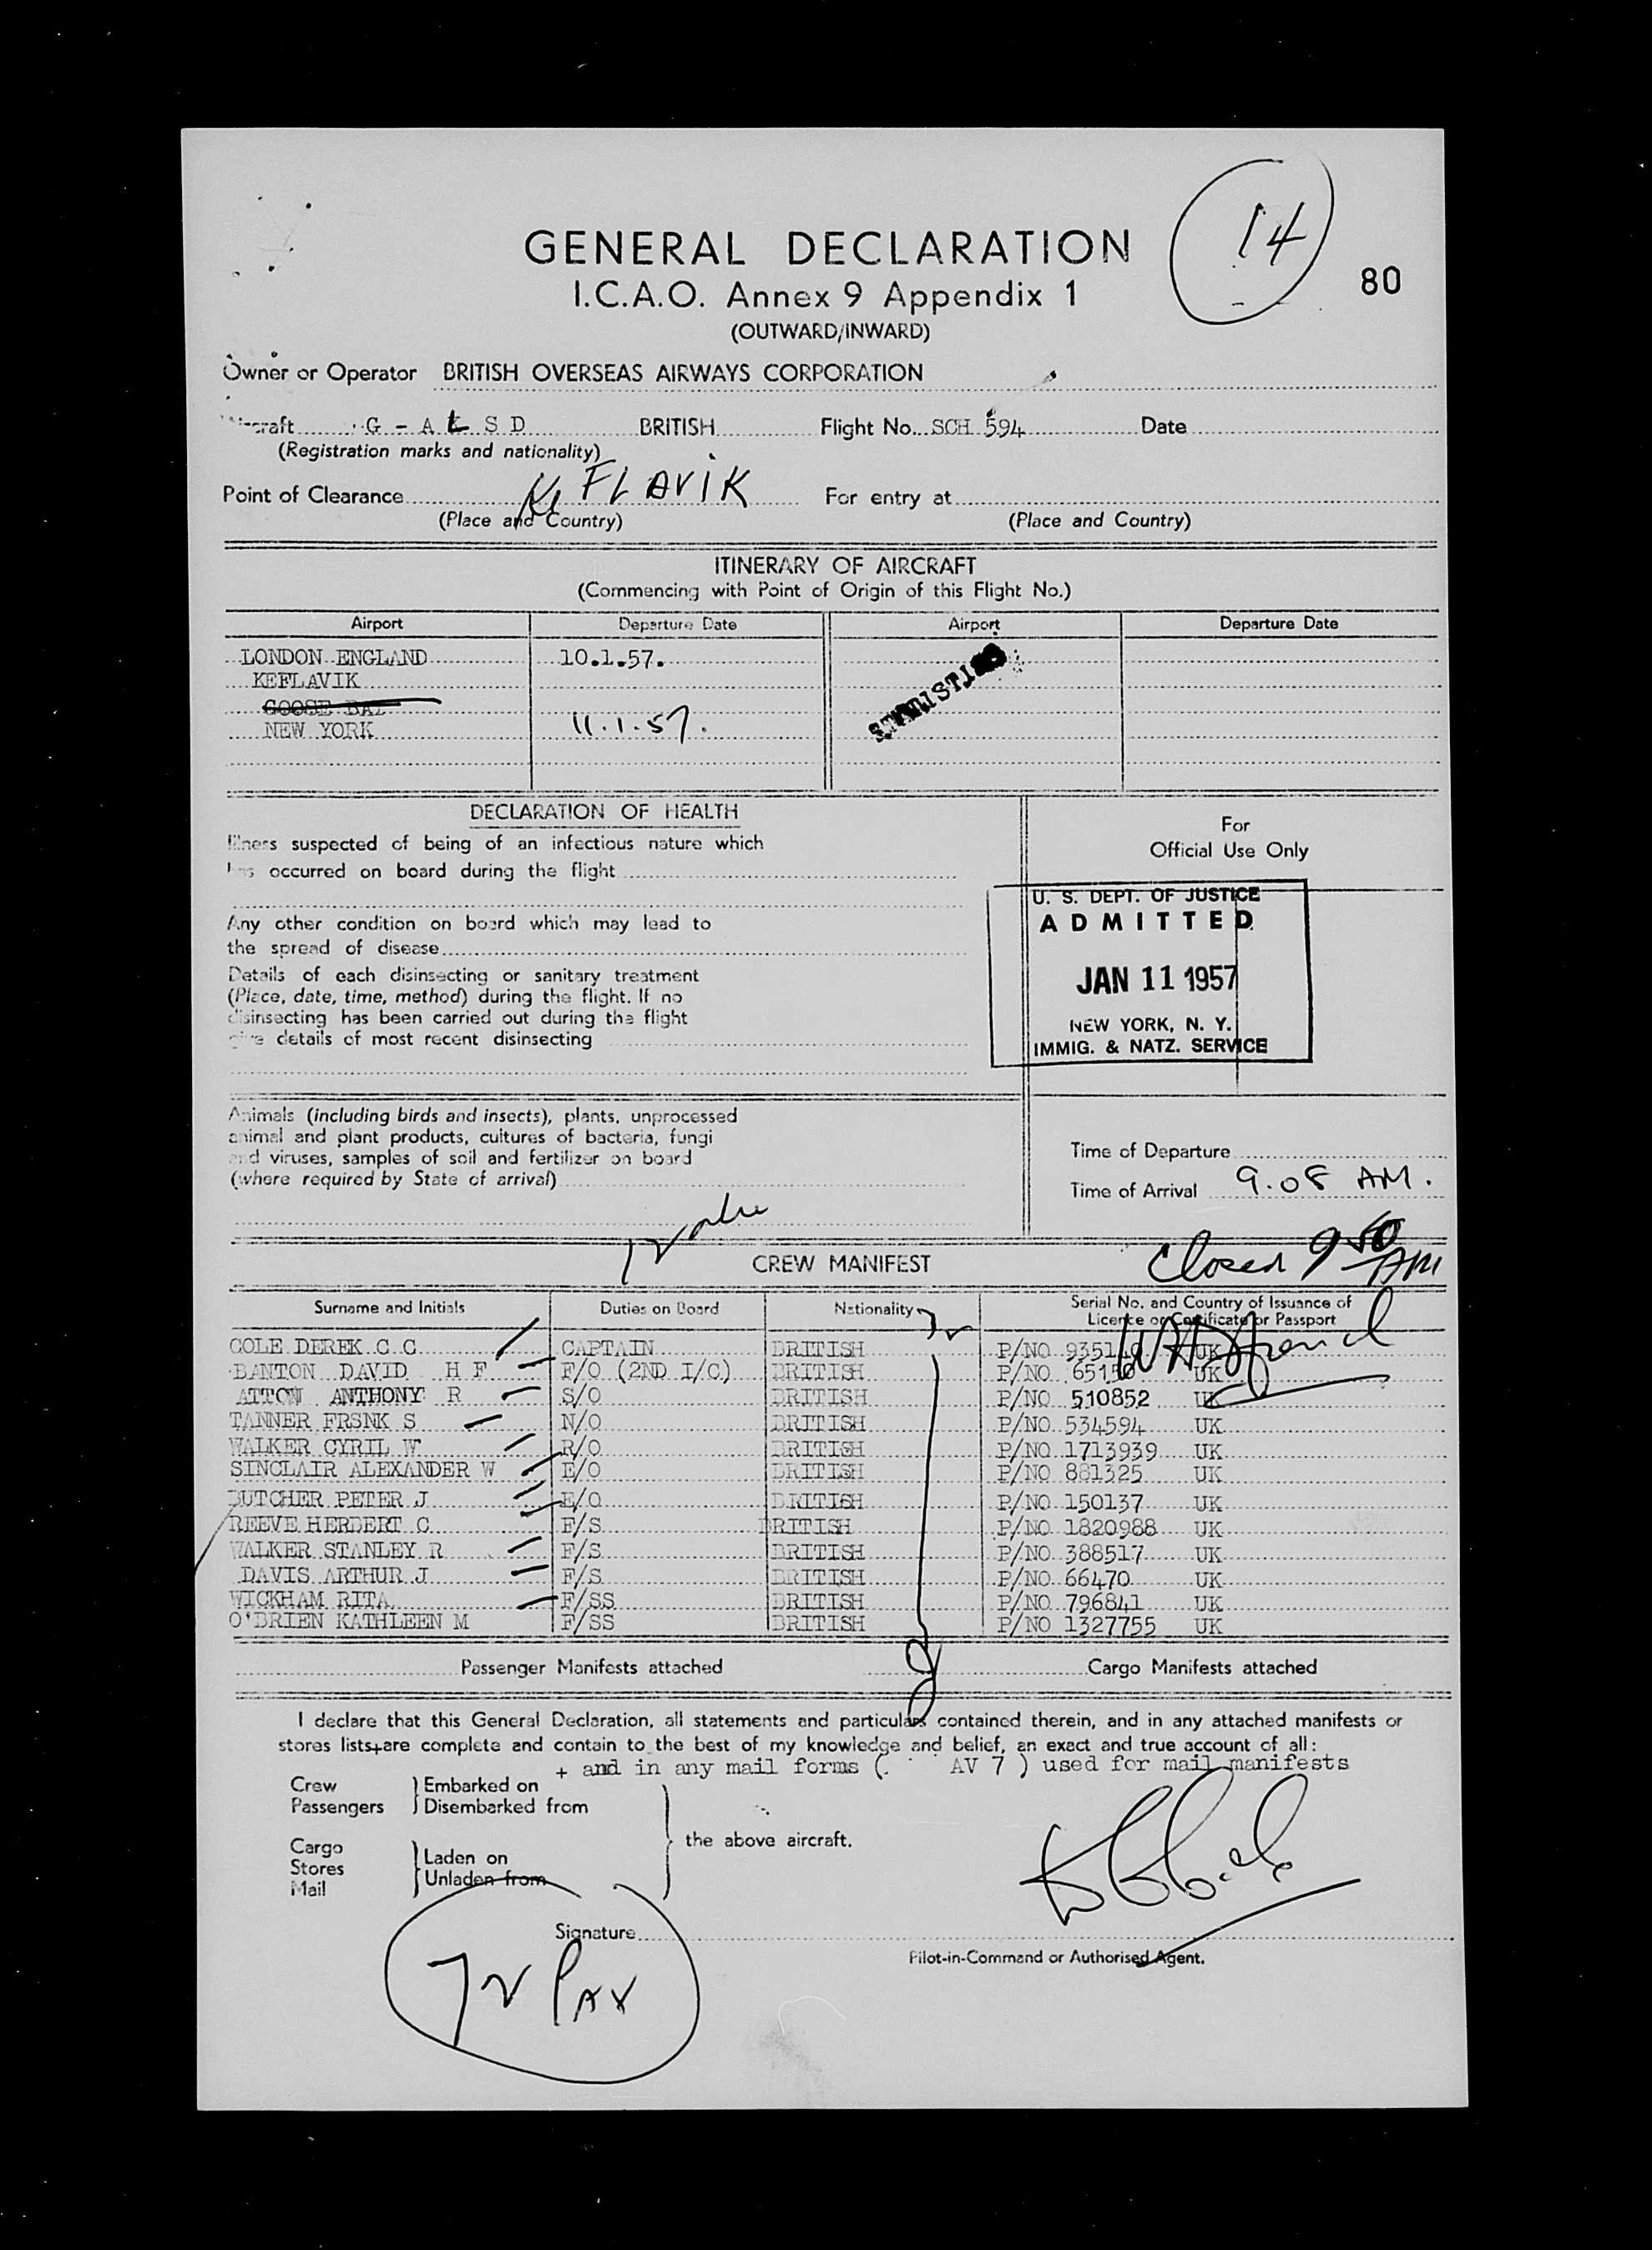 14
80
GENERAL DECLARATION
I.C.A.O. Annex 9 Appendix 1
(OUTWARD/INWARD)
Owner or Operator BRITISH OVERSEAS AIRWAYS CORPORATION
craft G - A L S D BRITISH Flight No. SCH 594 Date
(Registration marks and nationality)
Point of Clearance KEFLAVIK For entry at
(Place and Country) (Place and Country)
ITINERARY OF AIRCRAFT
(Commencing with Point of Origin of this Flight No.)
Airport Departure Date Airport Departure Date
LONDON ENGLAND 10.1.57.
KEFLAVIK
GOOSE BAY
NEW YORK 11.1.57.
DECLARATION OF HEALTH
Illness suspected of being of an infectious nature which
has occurred on board during the flight
Any other condition on board which may lead to
the spread of disease
Details of each disinsecting or sanitary treatment
(Place, date, time, method) during the flight. If no
disinsecting has been carried out during the flight
give details of most recent disinsecting
For
Official Use Only
U. S. DEPT. OF JUSTICE
ADMITTED
JAN 11 1957
NEW YORK, N. Y.
IMMIG. & NATZ. SERVICE
Animals (including birds and insects), plants, unprocessed
animal and plant products, cultures of bacteria, fungi
and viruses, samples of soil and fertilizer on board
(where required by State of arrival)
Time of Departure
Time of Arrival 9.08 AM.
CREW MANIFEST
Closed 9 50 AM
Surname and Initials Duties on Board Nationality Serial No. and Country of Issuance of
Licence or Certificate or Passport
COLE DEREK C C CAPTAIN BRITISH P/NO UK
BANTON DAVID H F F/O (2ND I/C) BRITISH P/NO UK
ATTON ANTHONY R S/O BRITISH P/NO 510852 UK
TANNER FRSNK S N/O BRITISH P/NO 534594 UK
WALKER CYRIL W R/O BRITISH P/NO 1713939 UK
SINCLAIR ALEXANDER W E/O BRITISH P/NO 881325 UK
BUTCHER PETER J E/O BRITISH P/NO 150137 UK
REEVE HERBERT C F/S BRITISH P/NO 1820988 UK
WALKER STANLEY R F/S BRITISH P/NO 388517 UK
DAVIS ARTHUR J F/S BRITISH P/NO 66470 UK
WICKHAM RITA F/SS BRITISH P/NO 796841 UK
O'BRIEN KATHLEEN M F/SS BRITISH P/NO 1327755 UK
Passenger Manifests attached Cargo Manifests attached
I declare that this General Declaration, all statements and particulars contained therein, and in any attached manifests or
stores lists+are complete and contain to the best of my knowledge and belief, an exact and true account of all:
+ and in any mail forms ( AV 7 ) used for mail manifests
Crew Embarked on
Passengers Disembarked from
the above aircraft.
Cargo
Stores Laden on
Mail Unladen from
Signature
Pilot-in-Command or Authorised Agent.
72 PAX